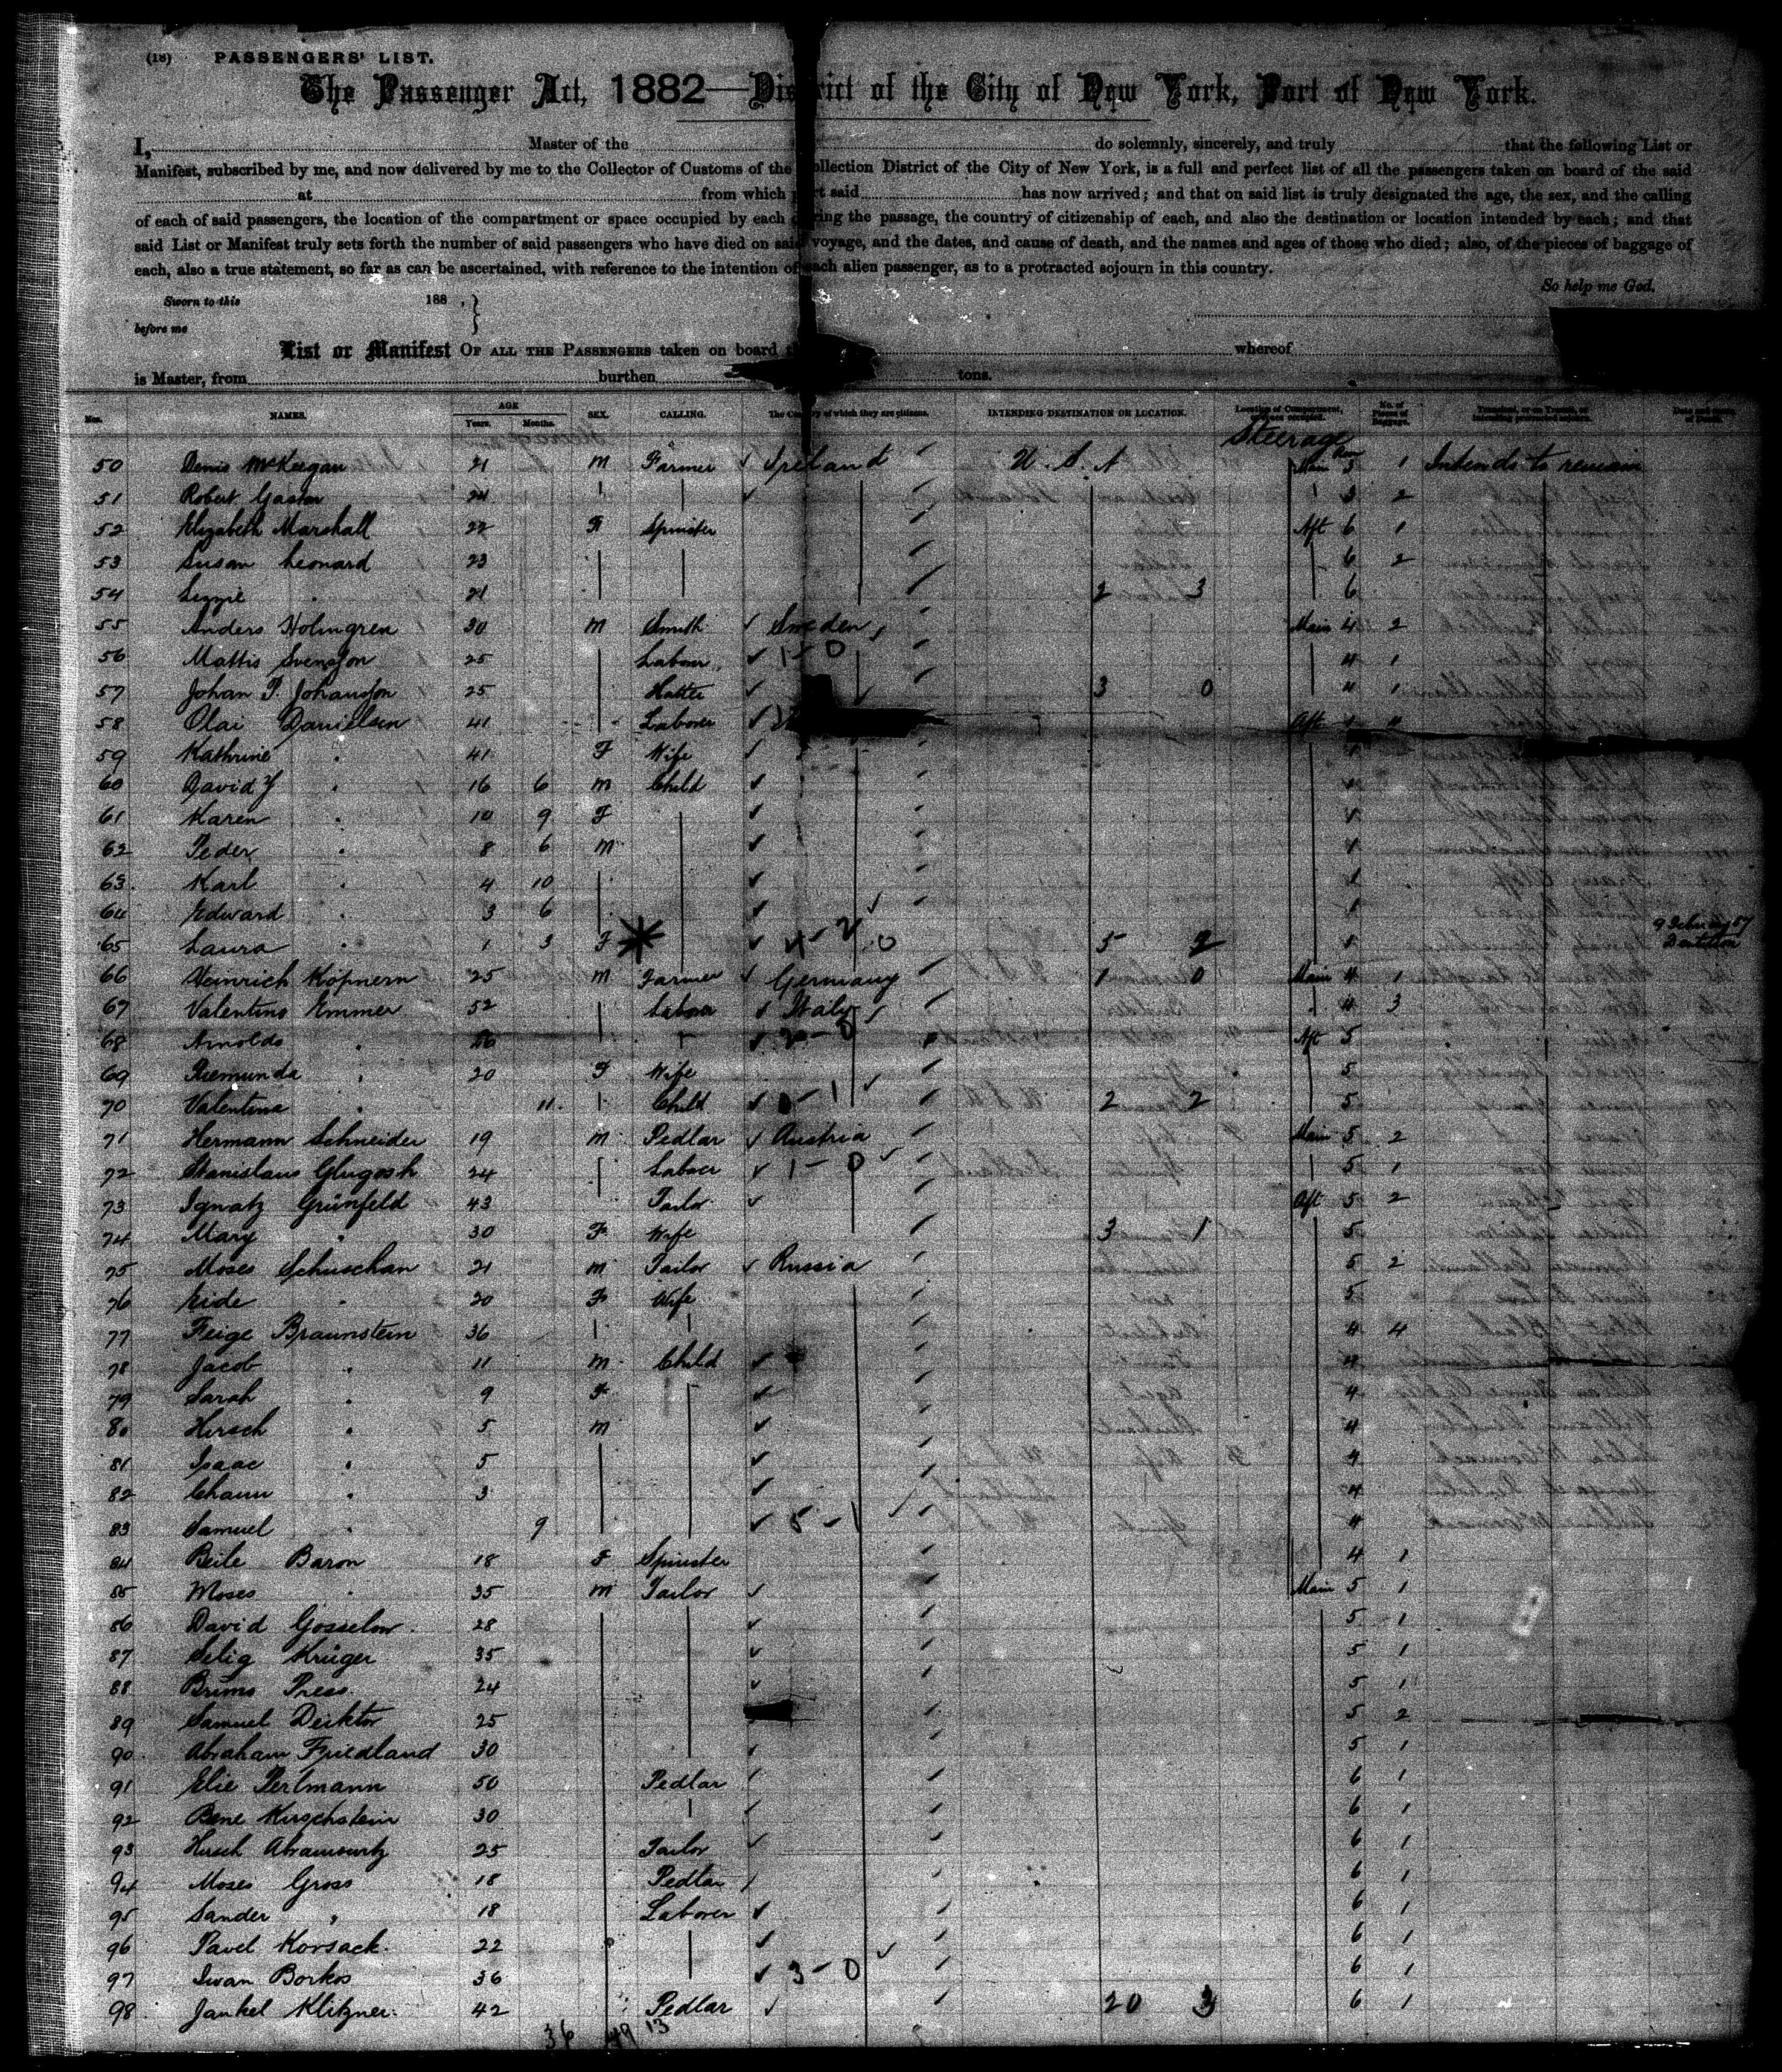 (18) PASSENGERS' LIST.
The Passenger Act, 1882—District of the City of New York, Port of New York.
I, Master of the do solemnly, sincerely, and truly that the following List or
Manifest, subscribed by me, and now delivered by me to the Collector of Customs of the Collection District of the City of New York, is a full and perfect list of all the passengers taken on board of the said
at from which port said has now arrived; and that on said list is truly designated the age, the sex, and the calling
of each of said passengers, the location of the compartment or space occupied by each during the passage, the country of citizenship of each, and also the destination or location intended by each; and that
said List or Manifest truly sets forth the number of said passengers who have died on said voyage, and the dates, and cause of death, and the names and ages of those who died; also, of the pieces of baggage of
each, also a true statement, so far as can be ascertained, with reference to the intention of each alien passenger, as to a protracted sojourn in this country.
So help me God.
Sworn to this 188 , }
before me
List or Manifest OF ALL THE PASSENGERS taken on board whereof
is Master, from burthen tons.
Nos. NAMES. AGE Years. Months. SEX. CALLING. The Country of which they are citizens. INTENDING DESTINATION OR LOCATION. Location of Compartment, or space occupied. No. of Pieces of Baggage.
Steerage
50 Denis McKeegan 21 M Farmer Ireland U.S.A Main 3 1 Intends to remain
51 Robert Gaston 24 3 2
52 Elizabeth Marshall 22 F Spinster Aft 6 1
53 Susan Leonard 23 6 2
54 Lizzie " 21 2 3 6
55 Anders Holmgren 30 M Smith Sweden Main 4 2
56 Mattis Svensson 25 Labour 1-0 4 1
57 Johan P. Johansson 25 Hatter 3 0 4 1
58 Olai Danielsen 41 Laborer Aft 1 4
59 Kathrine " 41 F Wife 1
60 David Y " 16 6 M Child 1
61 Karen " 10 9 F 1
62 Peder " 8 6 M 1
63 Karl " 4 10 1
64 Edward " 3 6 1
65 Laura " 1 3 F 5 2 1
66 Heinrich Kopnern 25 M Farmer Germany 1 0 Main 4 1
67 Valentino Emmer 52 Labour Italy 4 3
68 Arnoldo " 26 Aft 5
69 Remunda " 20 F Wife 5
70 Valentina " 11 Child 2 2 5
71 Hermann Schneider 19 M Pedlar Austria Main 5 2
72 Stanislaus Glugosh 24 Labour 1-0 5 1
73 Ignatz Grünfeld 43 Tailor Aft 5 2
74 Mary " 30 F Wife 3 1 5
75 Moses Schuschan 21 M Tailor Russia 5 2
76 Eide " 20 F Wife 5
77 Feige Braunstein 36 4 4
78 Jacob " 11 M Child 4
79 Sarah " 9 F 4
80 Hirsch " 5 M 4
81 Isaac " 5 4
82 Chaim " 3 4
83 Samuel " 9 5-1 4
84 Beile Baron 18 F Spinster 4 1
85 Moses " 35 M Tailor Main 5 1
86 David Gosselow 28 5 1
87 Selig Krüger 35 5 1
88 Press 24 5 1
89 Samuel Deiktor 25 5 2
90 Abraham Friedland 30 5 1
91 Elie Perlmann 50 Pedlar 6 1
92 Bene Kirschstein 30 6 1
93 Hirsch Abramowitz 25 Tailor 6 1
94 Moses Gross 18 Pedlar 6 1
95 Sander " 18 Laborer 6 1
96 Pavel Korsack 22 6 1
97 Iwan Borkos 36 3-0 6 1
98 Jankel Klitzner 42 Pedlar 20 3 6 1
36 49 13